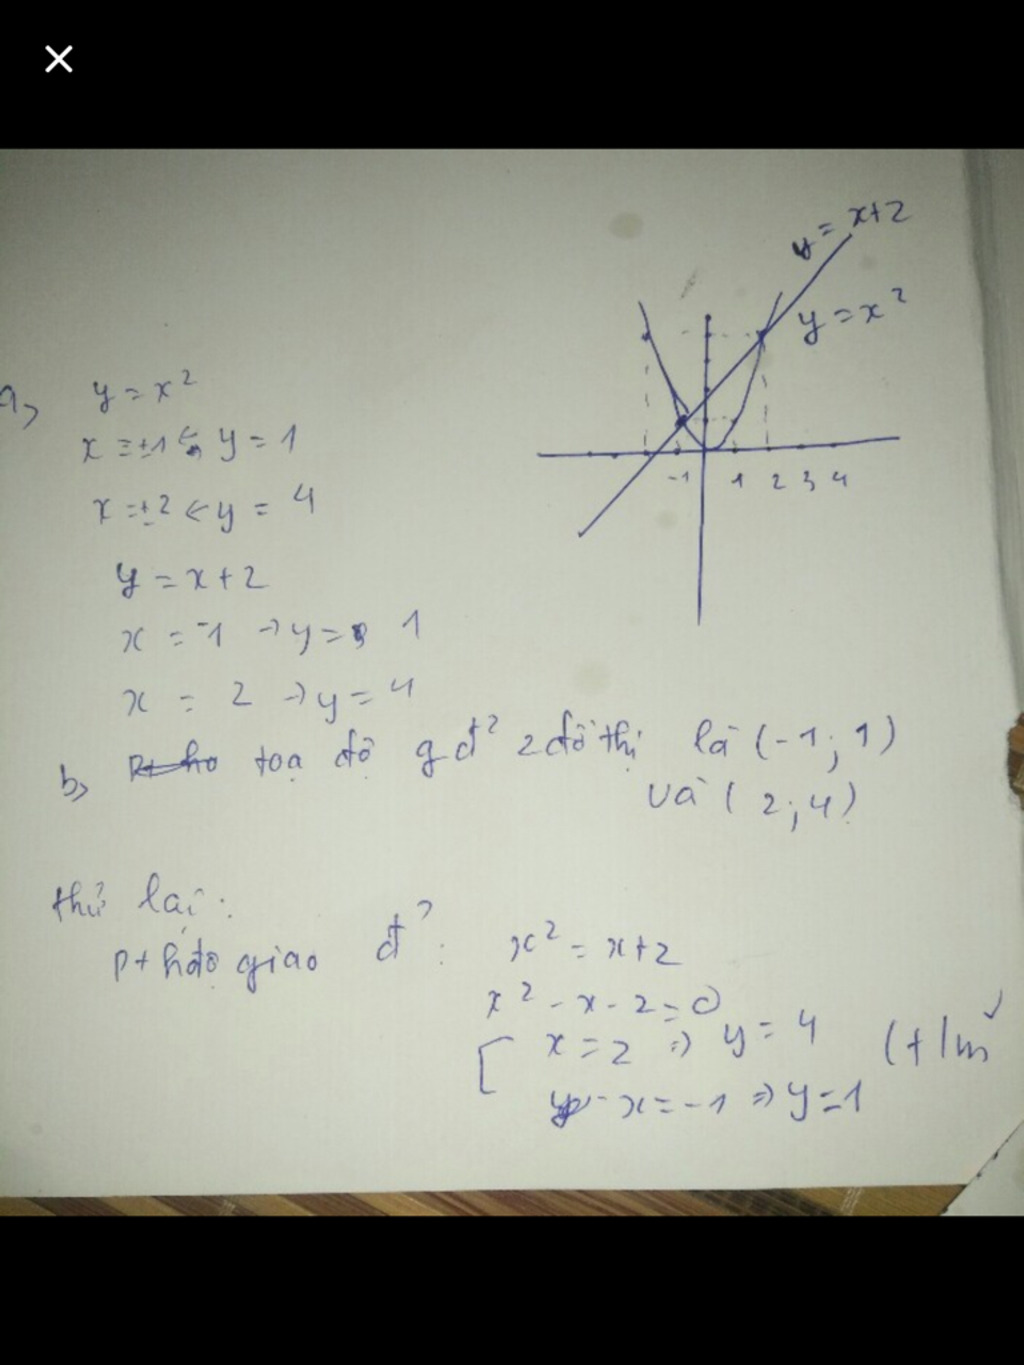 y = x+2
y = x²
-1 1 2 3 4
a, y = x²
x = ±1 ← y = 1
x = ±2 ← y = 4
y = x+2
x = -1 → y = 1
x = 2 → y = 4
b, toạ độ gđ² 2 đồ thị là (-1; 1)
và (2; 4)
thử lại:
pt hđộ giao đ²: x² = x+2
x² - x - 2 = 0
x = 2 => y = 4 (t/m
x = -1 => y = 1